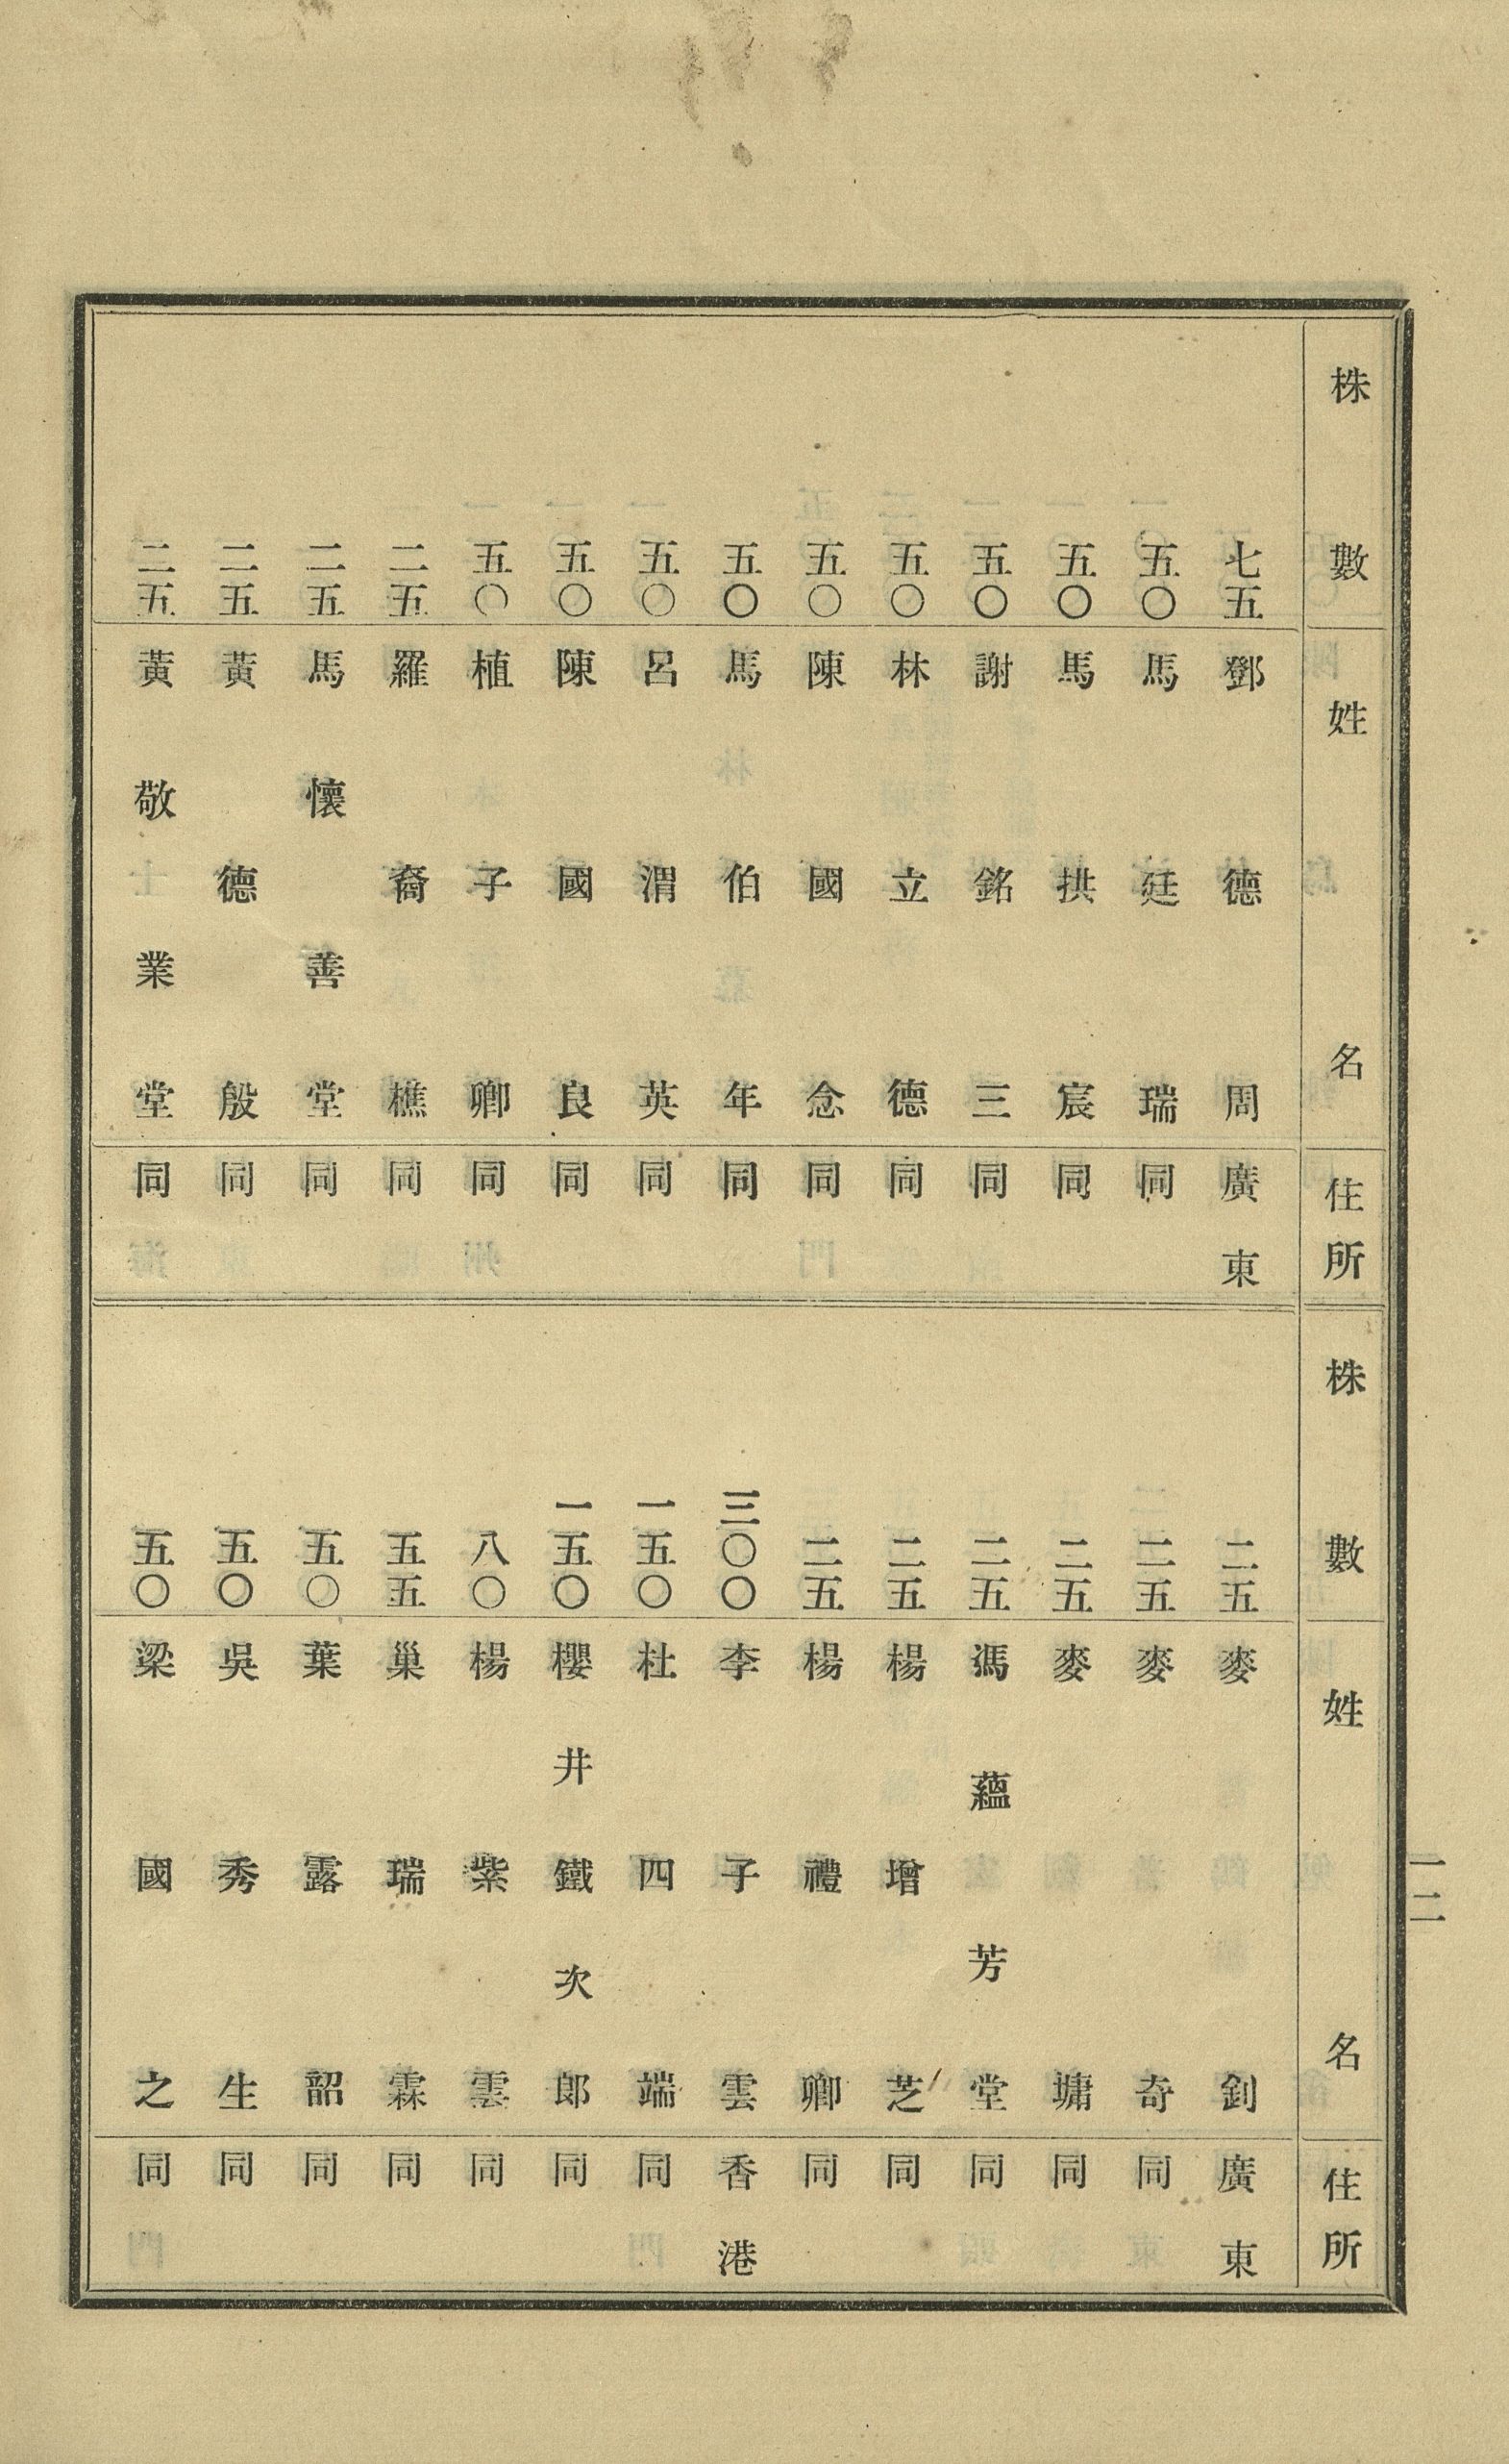 株數 姓名 住所
七五 鄧德周 廣東
五〇 馬廷瑞 同
五〇 馬拱宸 同
五〇 謝銘三 同
五〇 林立德 同
五〇 陳國念 同
五〇 馬伯年 同
五〇 呂渭英 同
五〇 陳國良 同
五〇 植子卿 同
二五 羅裔樵 同
二五 馬懷善堂 同
二五 黃德殷 同
二五 黃敬業堂 同
株數 姓名 住所
二五 麥釗 廣東
二五 麥奇 同
二五 麥墉 同
二五 馮蘊芳堂 同
二五 楊增芝 同
二五 楊禮卿 同
三〇〇 李子雲 香港
一五〇 杜四端 同
一五〇 櫻井鐵次郎 同
八〇 楊紫雲 同
五五 巢瑞霖 同
五〇 葉露韶 同
五〇 吳秀生 同
五〇 梁國之 同
一二